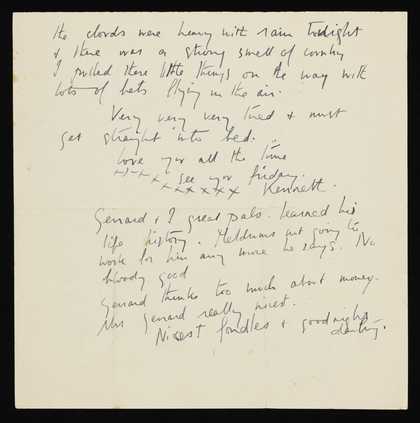 the clouds were heavy with rain tonight
& there was a strong smell of country
I picked these little things on the way with
lots of bats flying in the air.
Very very very tired & must
get straight into bed.
Love you all the time
x-x-x x see you friday.
x x x x x x x Kenneth.
Gerrard & I great pals. Learned his
life history. Meldrums not going to
work for him any more he says. No
bloody good
Gerrard thinks too much about money.
Mrs Gerrard really nicest.
Nicest fondles & goodnight
darling.